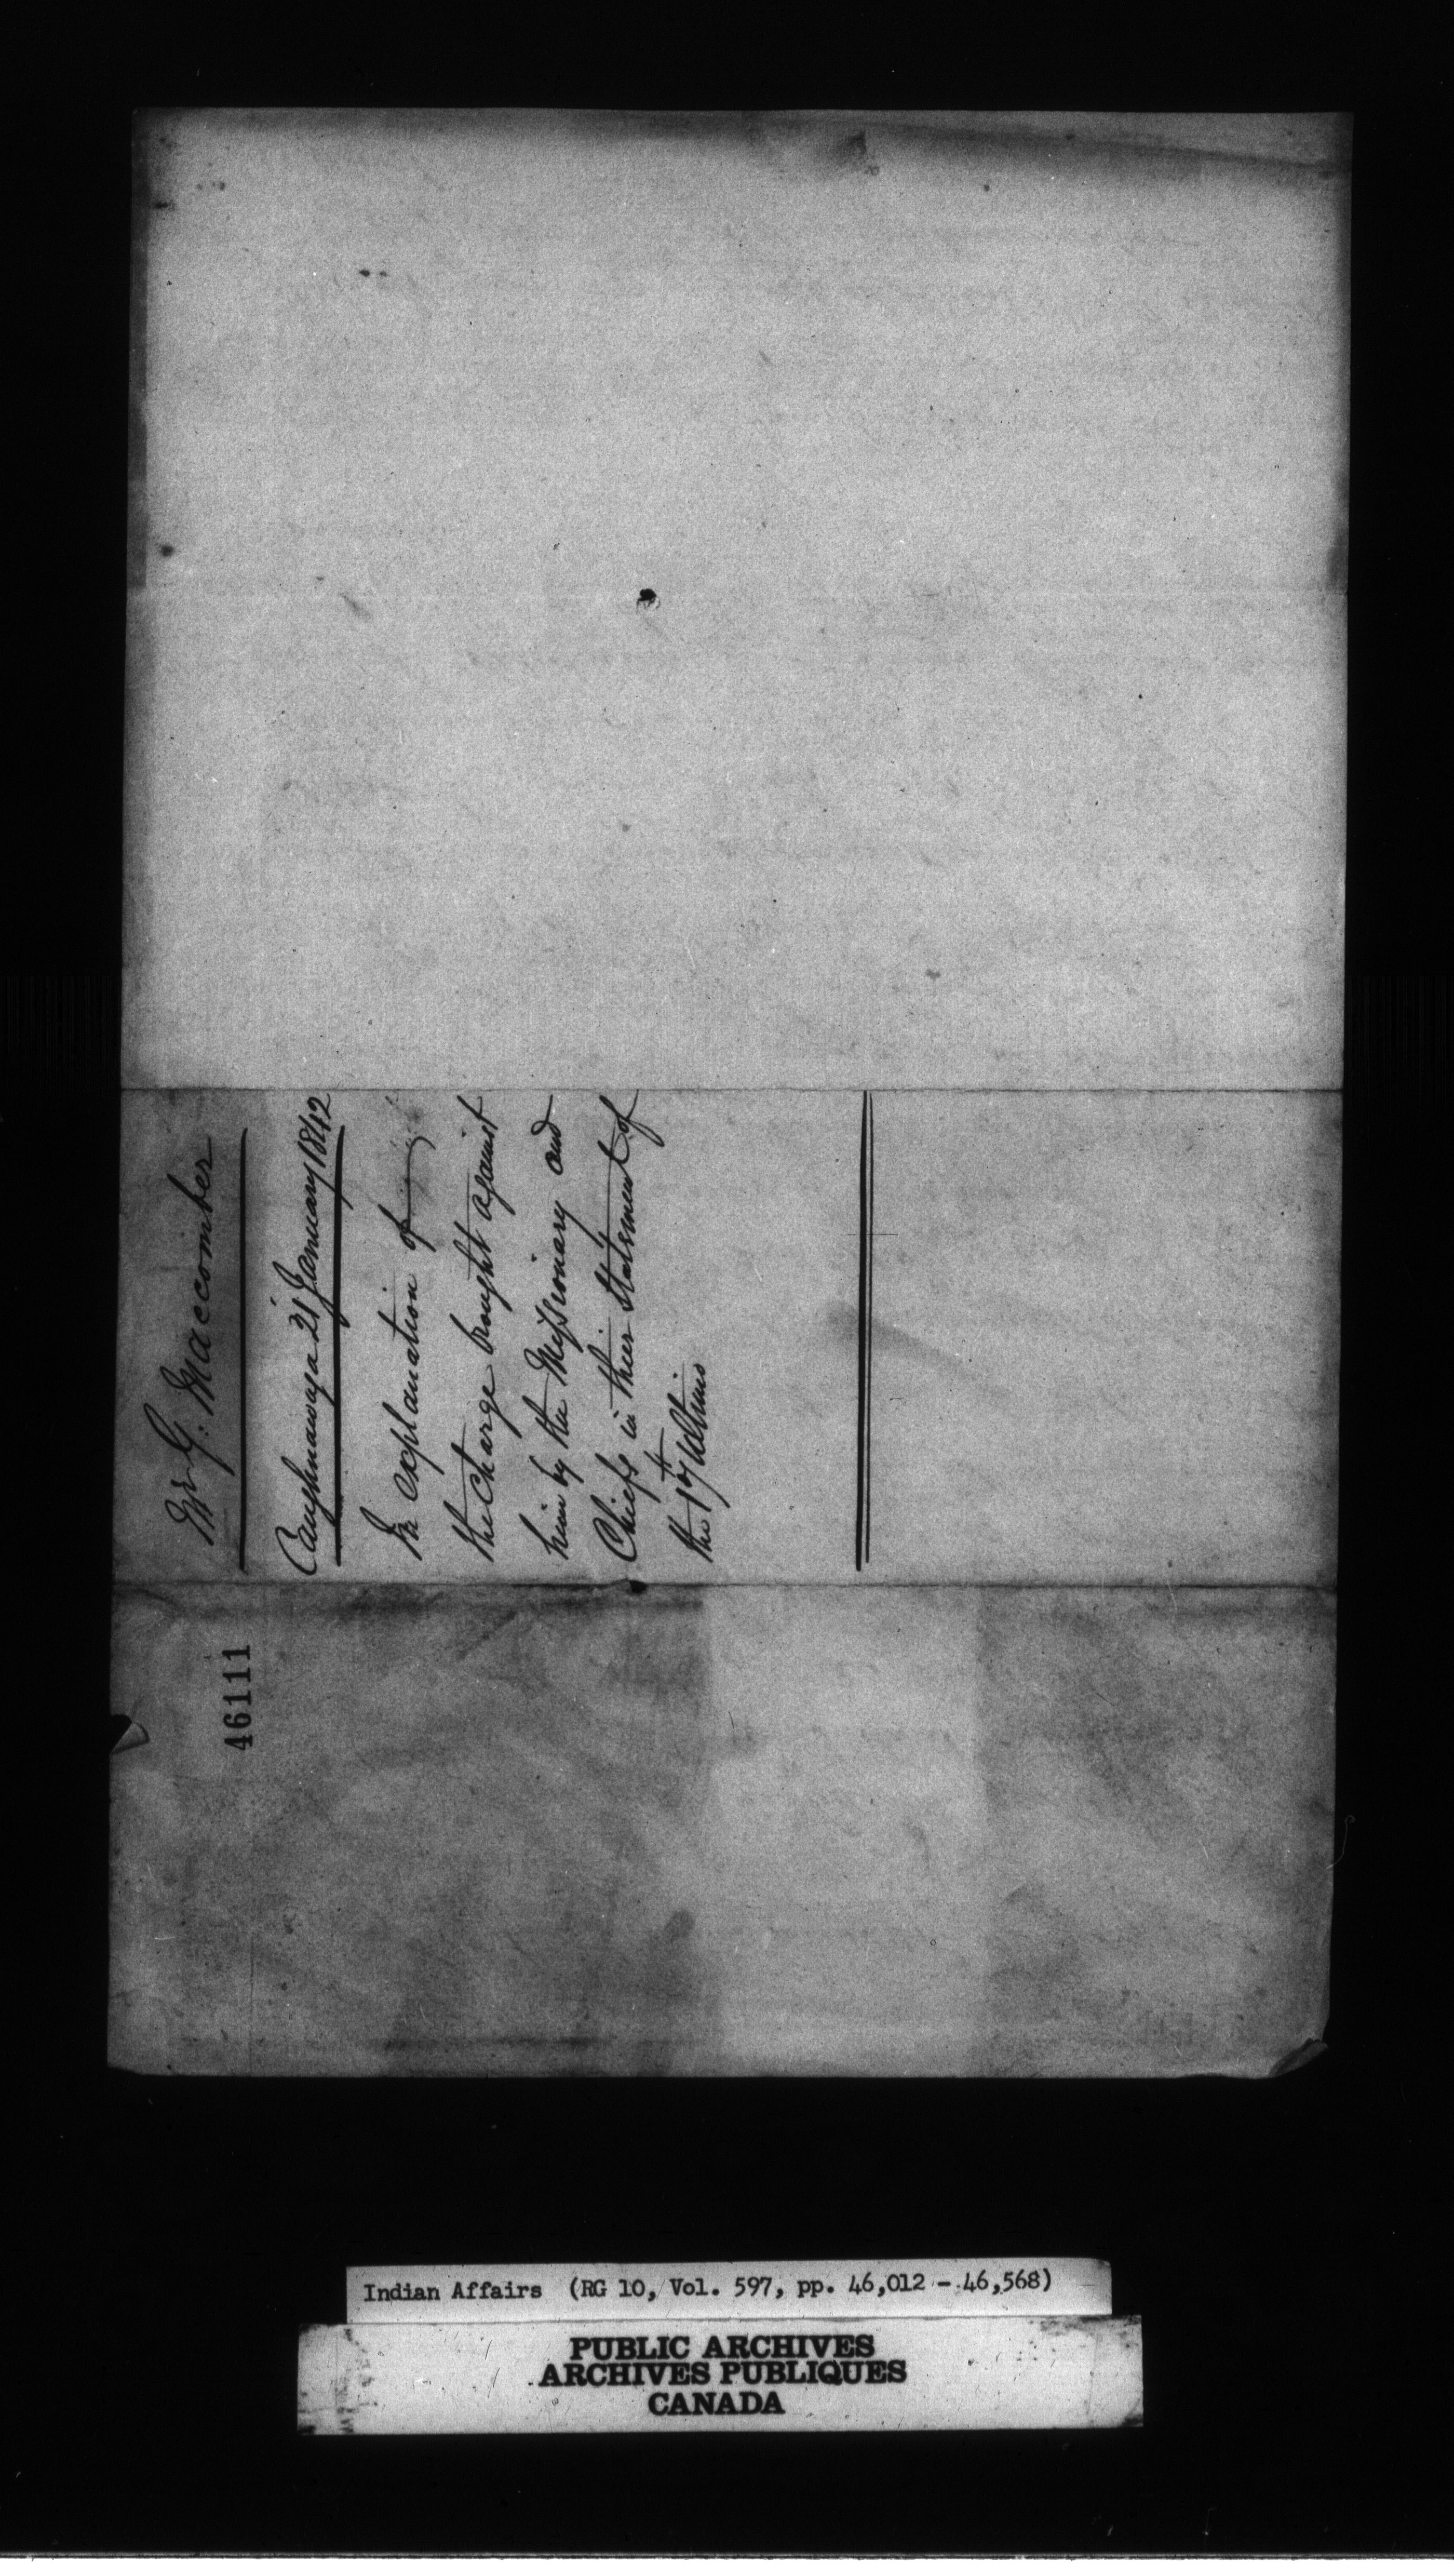 Mr G. Maccomber
Caughnawaga 21 January 1842
In explanation of
the charge brought against
him by the Missionary and
Chiefs in their Statement of
the 17th Ultimo
46111
Indian Affairs (RG 10, Vol. 597, pp. 46,012 - 46,568)
PUBLIC ARCHIVES
ARCHIVES PUBLIQUES
CANADA